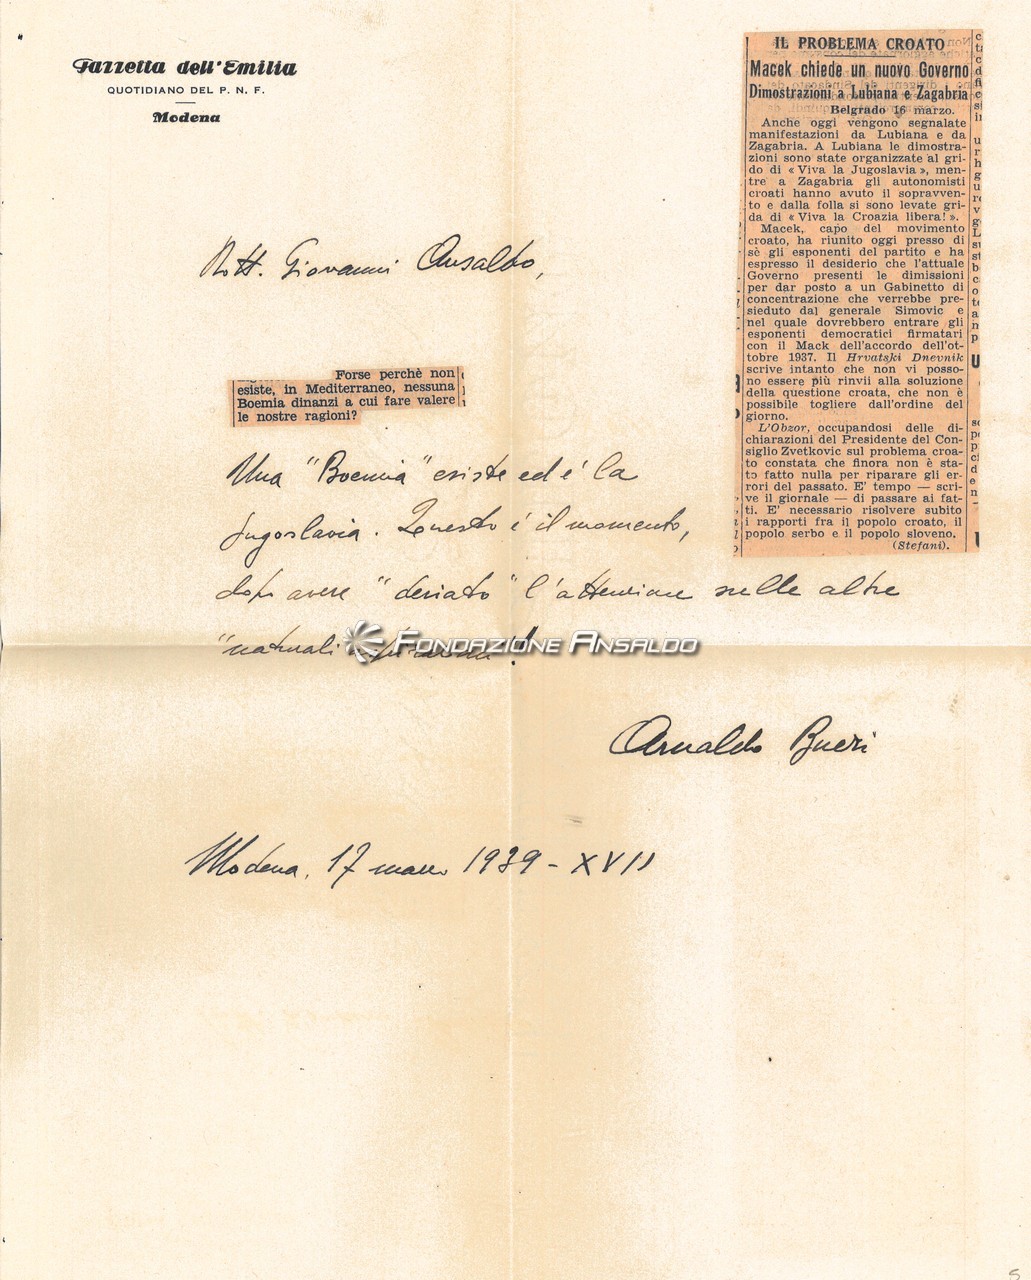 Gazzetta dell'Emilia
QUOTIDIANO DEL P. N. F.
Modena
IL PROBLEMA CROATO
Macek chiede un nuovo Governo
Dimostrazioni a Lubiana e Zagabria
Belgrado 16 marzo.
Anche oggi vengono segnalate
manifestazioni da Lubiana e da
Zagabria. A Lubiana le dimostra-
zioni sono state organizzate al gri-
do di « Viva la Jugoslavia », men-
tre a Zagabria gli autonomisti
croati hanno avuto il sopravven-
to e dalla folla si sono levate gri-
da di « Viva la Croazia libera! ».
Macek, capo del movimento
croato, ha riunito oggi presso di
sè gli esponenti del partito e ha
espresso il desiderio che l'attuale
Governo presenti le dimissioni
per dar posto a un Gabinetto di
concentrazione che verrebbe pre-
sieduto dal generale Simovic e
nel quale dovrebbero entrare gli
esponenti democratici firmatari
con il Mack dell'accordo dell'ot-
tobre 1937. Il Hrvatski Dnevnik
scrive intanto che non vi posso-
no essere più rinvii alla soluzione
della questione croata, che non è
possibile togliere dall'ordine del
giorno.
L'Obzor, occupandosi delle di-
chiarazioni del Presidente del Con-
siglio Zvetkovic sul problema croa-
to constata che finora non è sta-
to fatto nulla per riparare gli er-
rori del passato. E' tempo — scri-
ve il giornale — di passare ai fat-
ti. E' necessario risolvere subito
i rapporti fra il popolo croato, il
popolo serbo e il popolo sloveno.
(Stefani).
Dott. Giovanni Ansaldo,
Forse perchè non
esiste, in Mediterraneo, nessuna
Boemia dinanzi a cui fare valere
le nostre ragioni?
Una "Boemia" esiste ed è la
Jugoslavia. Questo è il momento,
dopo avere "deviato" l'attenzione sulle altre
"naturali
FONDAZIONE ANSALDO
Arnaldo
Modena, 17 marzo 1939 - XVII